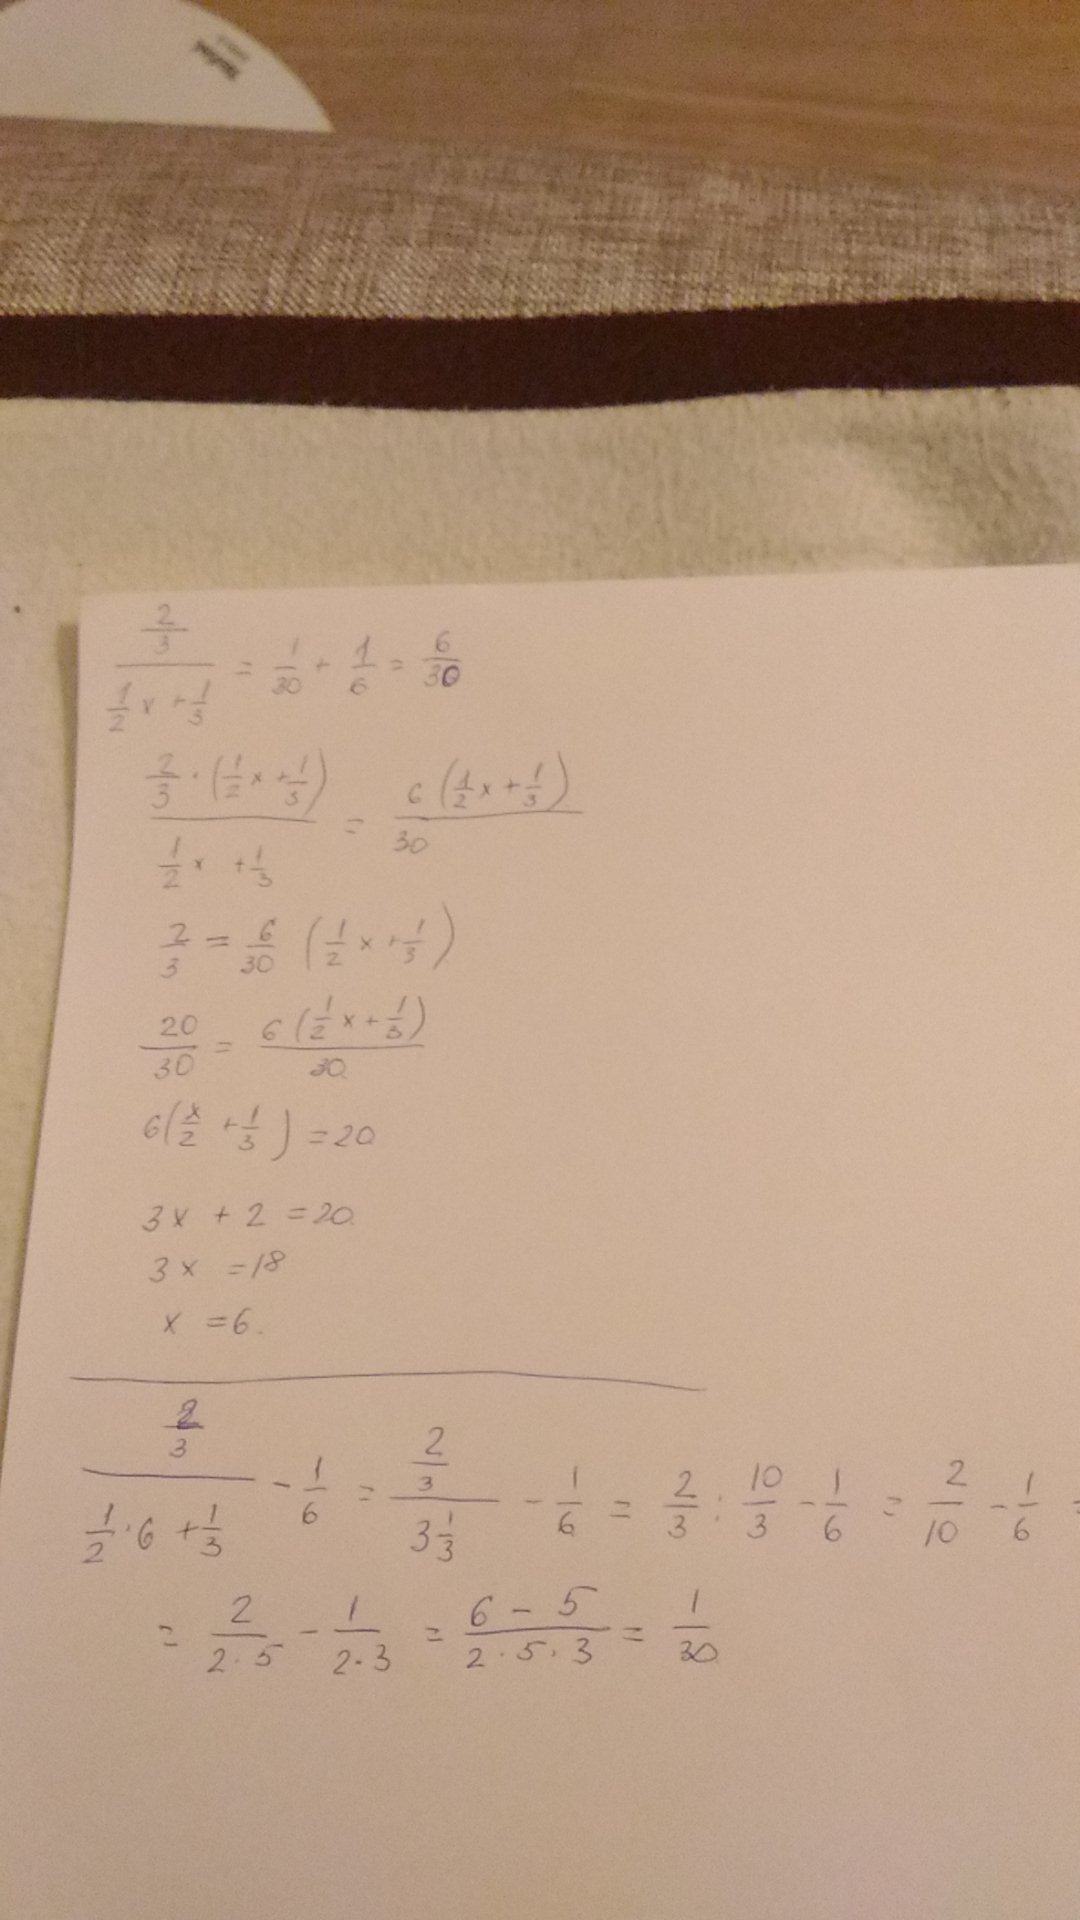 (2/3)/(1/2 x + 1/3) = 1/30 + 1/6 = 6/30
(2/3 · (1/2 x + 1/3))/(1/2 x + 1/3) = 6(1/2 x + 1/3)/30
2/3 = 6/30 (1/2 x + 1/3)
20/30 = 6(1/2 x + 1/3)/30
6(x/2 + 1/3) = 20
3x + 2 = 20
3x = 18
x = 6.
(2/3)/(1/2 · 6 + 1/3) - 1/6 = (2/3)/(3 1/3) - 1/6 = 2/3 : 10/3 - 1/6 = 2/10 - 1/6 =
= 2/(2·5) - 1/(2·3) = (6 - 5)/(2·5·3) = 1/30